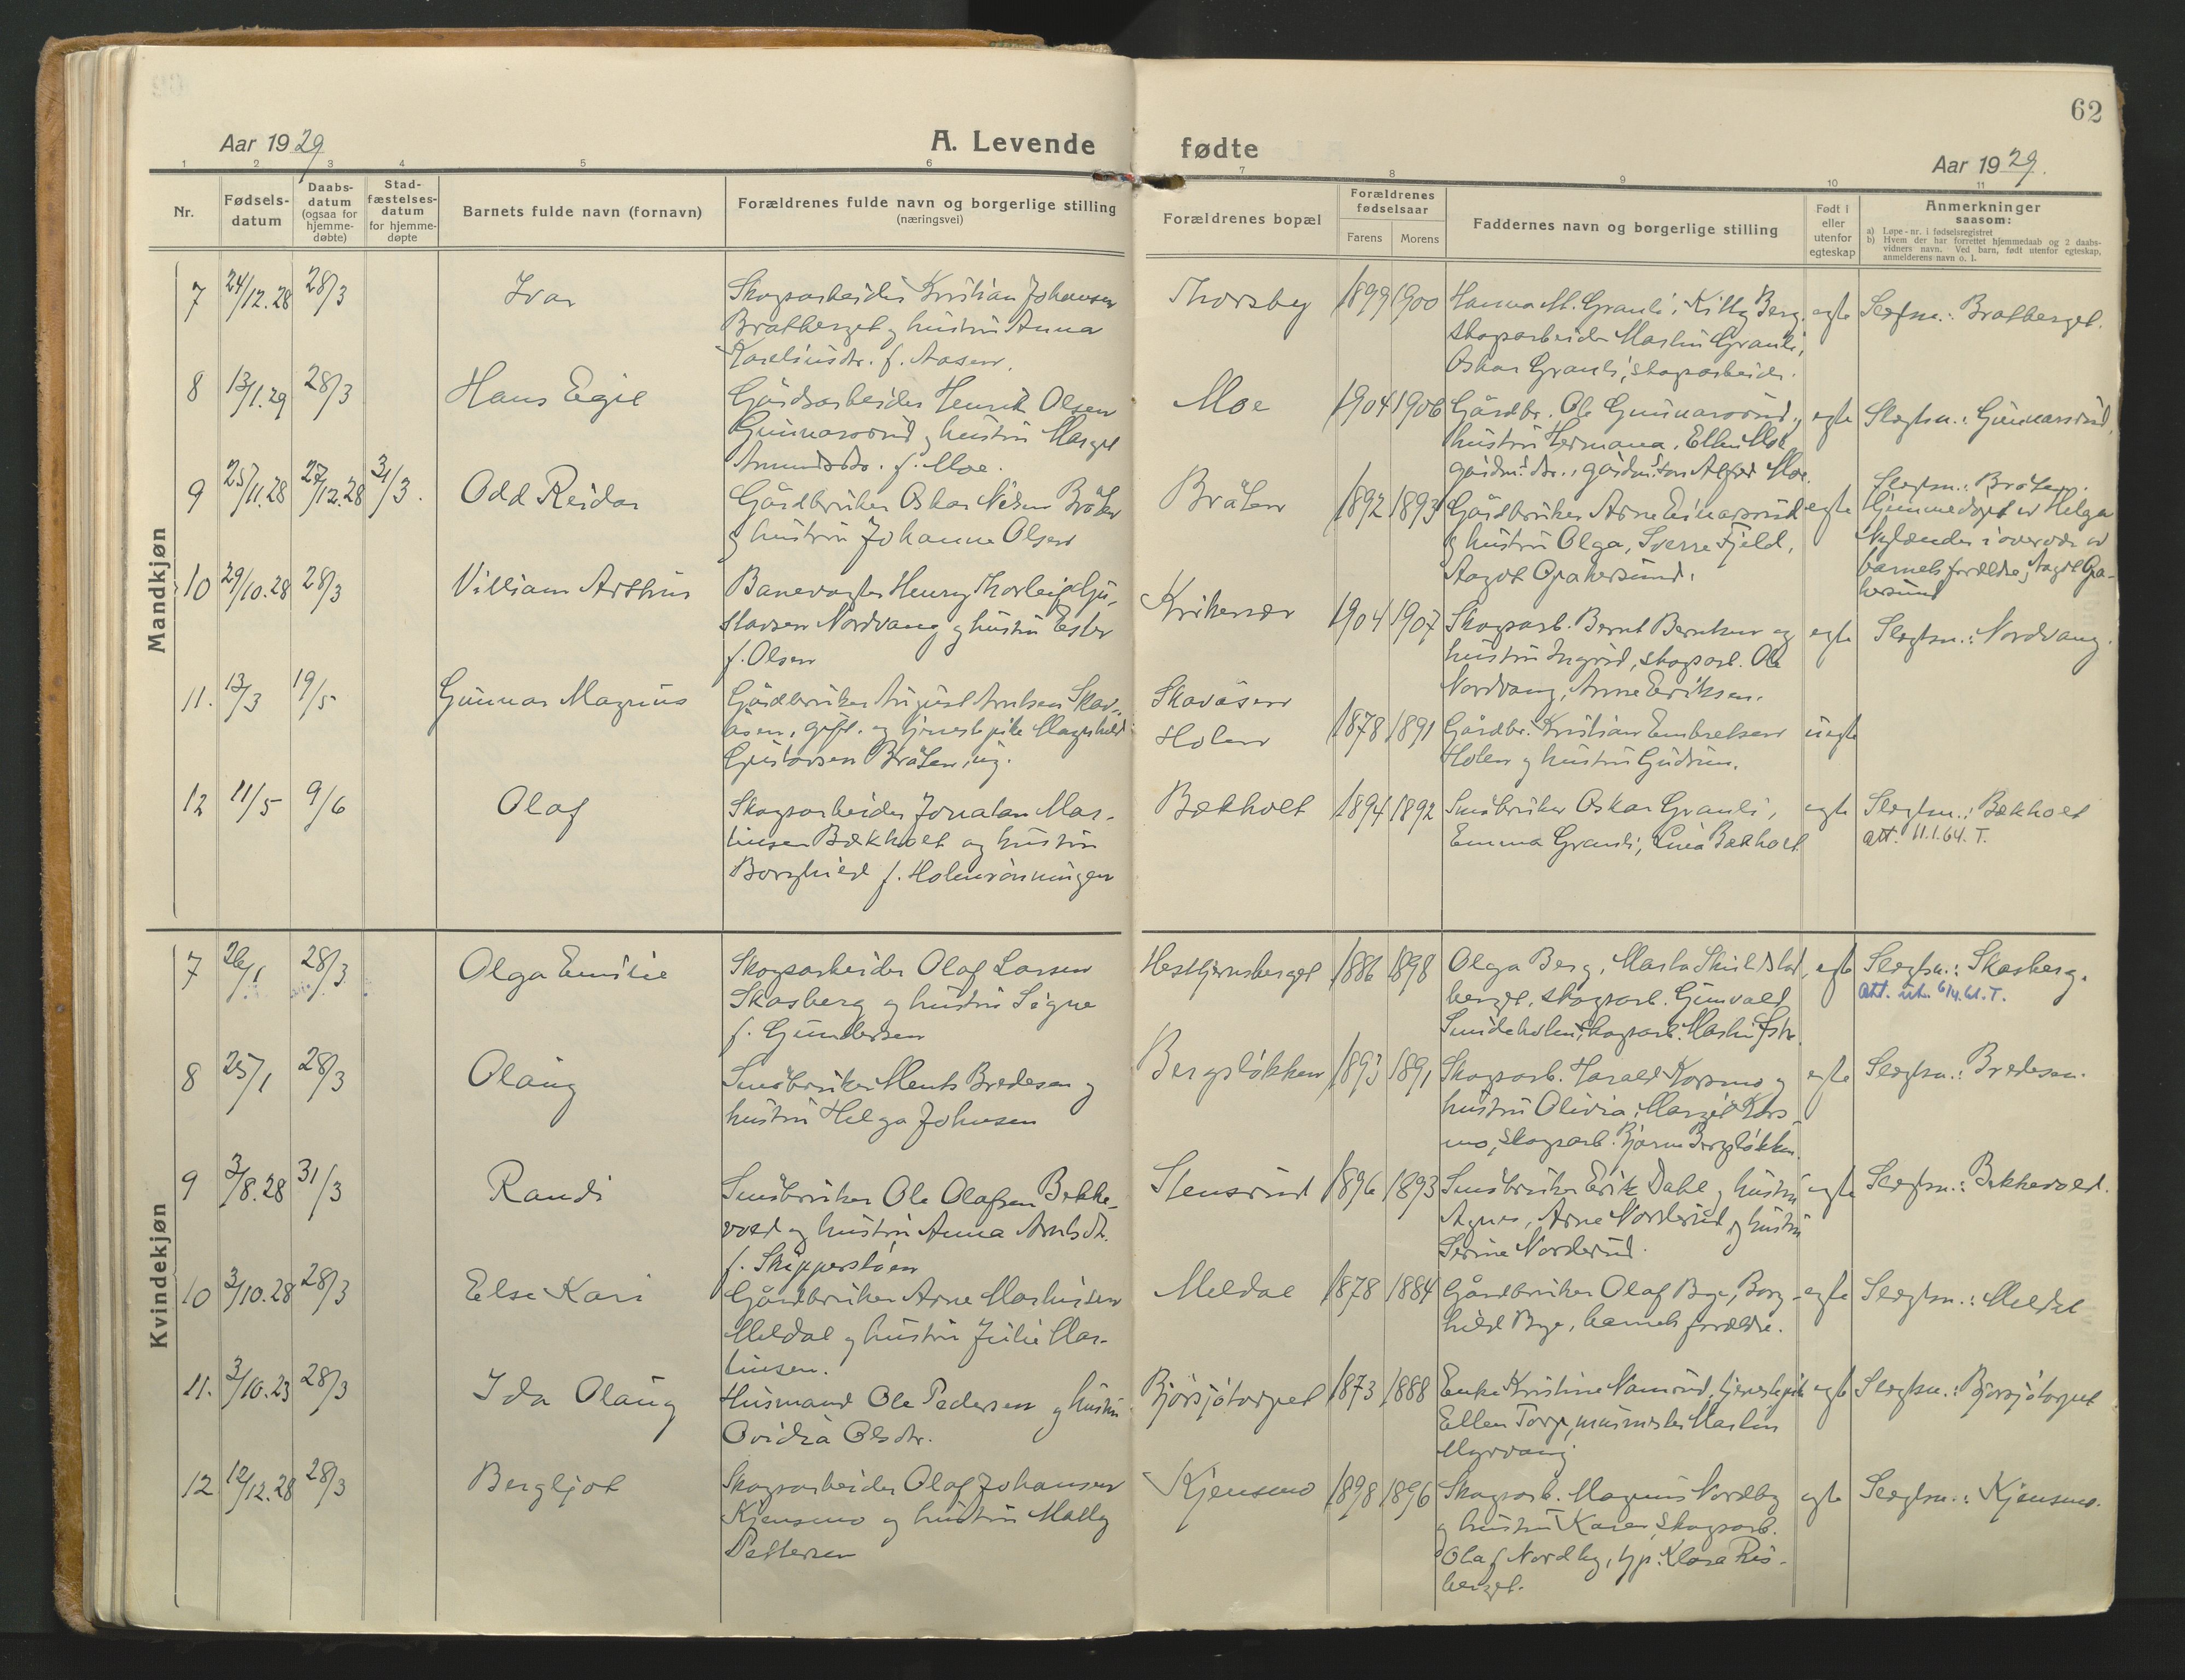 62
Aar 1929
A. Levende fødte
Aar 1929.
1 2 3 4 5 6 7 8 9 10 11
Nr.
Fødsels-
datum
Daabs-
datum
(ogsaa for
hjemme-
døbte)
Stad-
fæstelses-
datum
for hjemme-
døpte
Barnets fulde navn (fornavn)
Forældrenes fulde navn og borgerlige stilling
(næringsvei)
Forældrenes bopæl
Forældrenes
fødselsaar
Farens Morens
Faddernes navn og borgerlige stilling
Født i
eller
utenfor
egteskap
Anmerkninger
saasom:
a) Løpe-nr. i fødselsregistret
b) Hvem der har forrettet hjemmedaab og 2 daabs-
vidners navn. Ved barn, født utenfor egteskap,
anmelderens navn o. l.
Mandkjøn
7 24/12.28 28/3 Ivar
Skogsarbeider Kristian Johansen
Bratberget og hustru Anna
Kareliusdtr. f. Aasen.
Thorsby 1899 1900
Hanna M. Granli, Kitty Berg,
skogsarbeider Martin Granli,
Oskar Granli, skogsarbeider.
egte Slegtsn.: Bratberget.
8 13/1.29 28/3 Hans Egil
Gårdsarbeider Henrik Olsen
Gunnarsrud og hustru Margit
Amundsdtr. f. Moe.
Moe 1904 1906
Gårdbr. Ole Gunnarsrud,
hustru Hermana, Ellen Moe,
gårdm.s dtr., gårdm.s søn Alfred Moe.
egte Slegtsn.: Gunnarsrud.
9 25/11.28 27/12.28 31/3. Odd Reidar
Gårdbruker Oskar Nilsen Bråten
og hustru Johanne Olsen
Bråten 1892 1893
Gårdbruker Arne Einarsrud
og hustru Olga, Sverre Fjeld,
Aagot Opakersund.
egte Slegtsn.: Bråten.
Hjemmedøpt av Helga
Nylænder i overvær av
barnets forældre, Aagot Opa-
kersund
10 29/10.28 28/3 William Arthur
Banevogter Henry Thorleif Gu-
stavsen Nordvang og hustru Ester
f. Olsen
Krikenær 1904 1907
Skogsarb. Bernt Berntsen og
hustru Ingrid, skogsarb. Ole
Nordvang, Anne Eriksen.
egte Slegtsn.: Nordvang.
11. 13/3 19/5 Gunnar Magnus
Gårdbruker August Arntsen Skav-
åsen, gift. og tjenestepike Magnhild
Gustavsen Bråten, ug.
Skavåsen
Holen 1878 1891
Gårdbr. Kristian Embretsen
Holen og hustru Gudrun.
uegte
12 11/5 9/6 Olaf
Skogsarbeider Jonatan Mar-
tinsen Bækholt og hustru
Borghild f. Holmrønningen
Bækholt 1894 1892
Småbruker Oskar Granli,
Emma Granli, Lina Bækholt
egte Slegtsn.: Bækholt
att. 11.1.64. T.
Kvindekjøn
7 26/1 28/3 Olga Emilie
Skogsarbeider Olaf Larsen
Skasberg og hustru Signe
f. Gundersen
Hesttjernsberget 1886 1898
Olga Berg,
berget, skogsarb. Gunvald
skogsarb. Martin
egte Slegtsn.: Skasberg.
att. ut. 6/4.61. T.
8 25/1 28/3 Olaug
Småbruker Ments Bredesen og
hustru Helga Johnsen
Bergsløkken 1893 1891
Skogsarb. Harald Korsmo og
hustru Olivia, Margit Kors-
mo, skogsarb. Bjarne Bergsløkken.
egte Slegtsn.: Bredesen.
9 3/8.28 31/3 Randi
Småbruker Ole Olafsen Bekke-
vold og hustru Anna Arntsdtr.
f. Skipperstøen
Stensrud 1896 1893
Småbruker Erik Dahl og hustru
Agnes, Arne Norderud og hustru
Serine Norderud.
egte Slegtsn.: Bekkevold.
10 3/10.28 28/3 Else Kari
Gårdbruker Arne Martinsen
Meldal og hustru Julie Mar-
tinsen.
Meldal 1878 1884
Gårdbruker Olaf Bye, Borg-
hild Bye, barnets forældre.
egte Slegtsn.: Meldal
11. 3/10.23 28/3 Ida Olaug
Husmand Ole Pedersen og hustru
Ovidia Olsdtr.
Bjørsjøtorpet 1873 1888
Enke Kristine Namrud, tjenestepike
Ellen Torp, murmester Martin
Myrvang
egte Slegtsn.: Bjørsjøtorpet
12 12/12.28 28/3 Bergljot
Skogsarbeider Olaf Johansen
Kjensmo og hustru Mally
Pettersen
Kjensmo 1898 1896
Skogsarb. Magnus Nordby
og hustru Karen, skogsarb.
Olaf Nordby, tjp. Klara Ris-
berget.
egte Slegtsn.: Kjensmo.